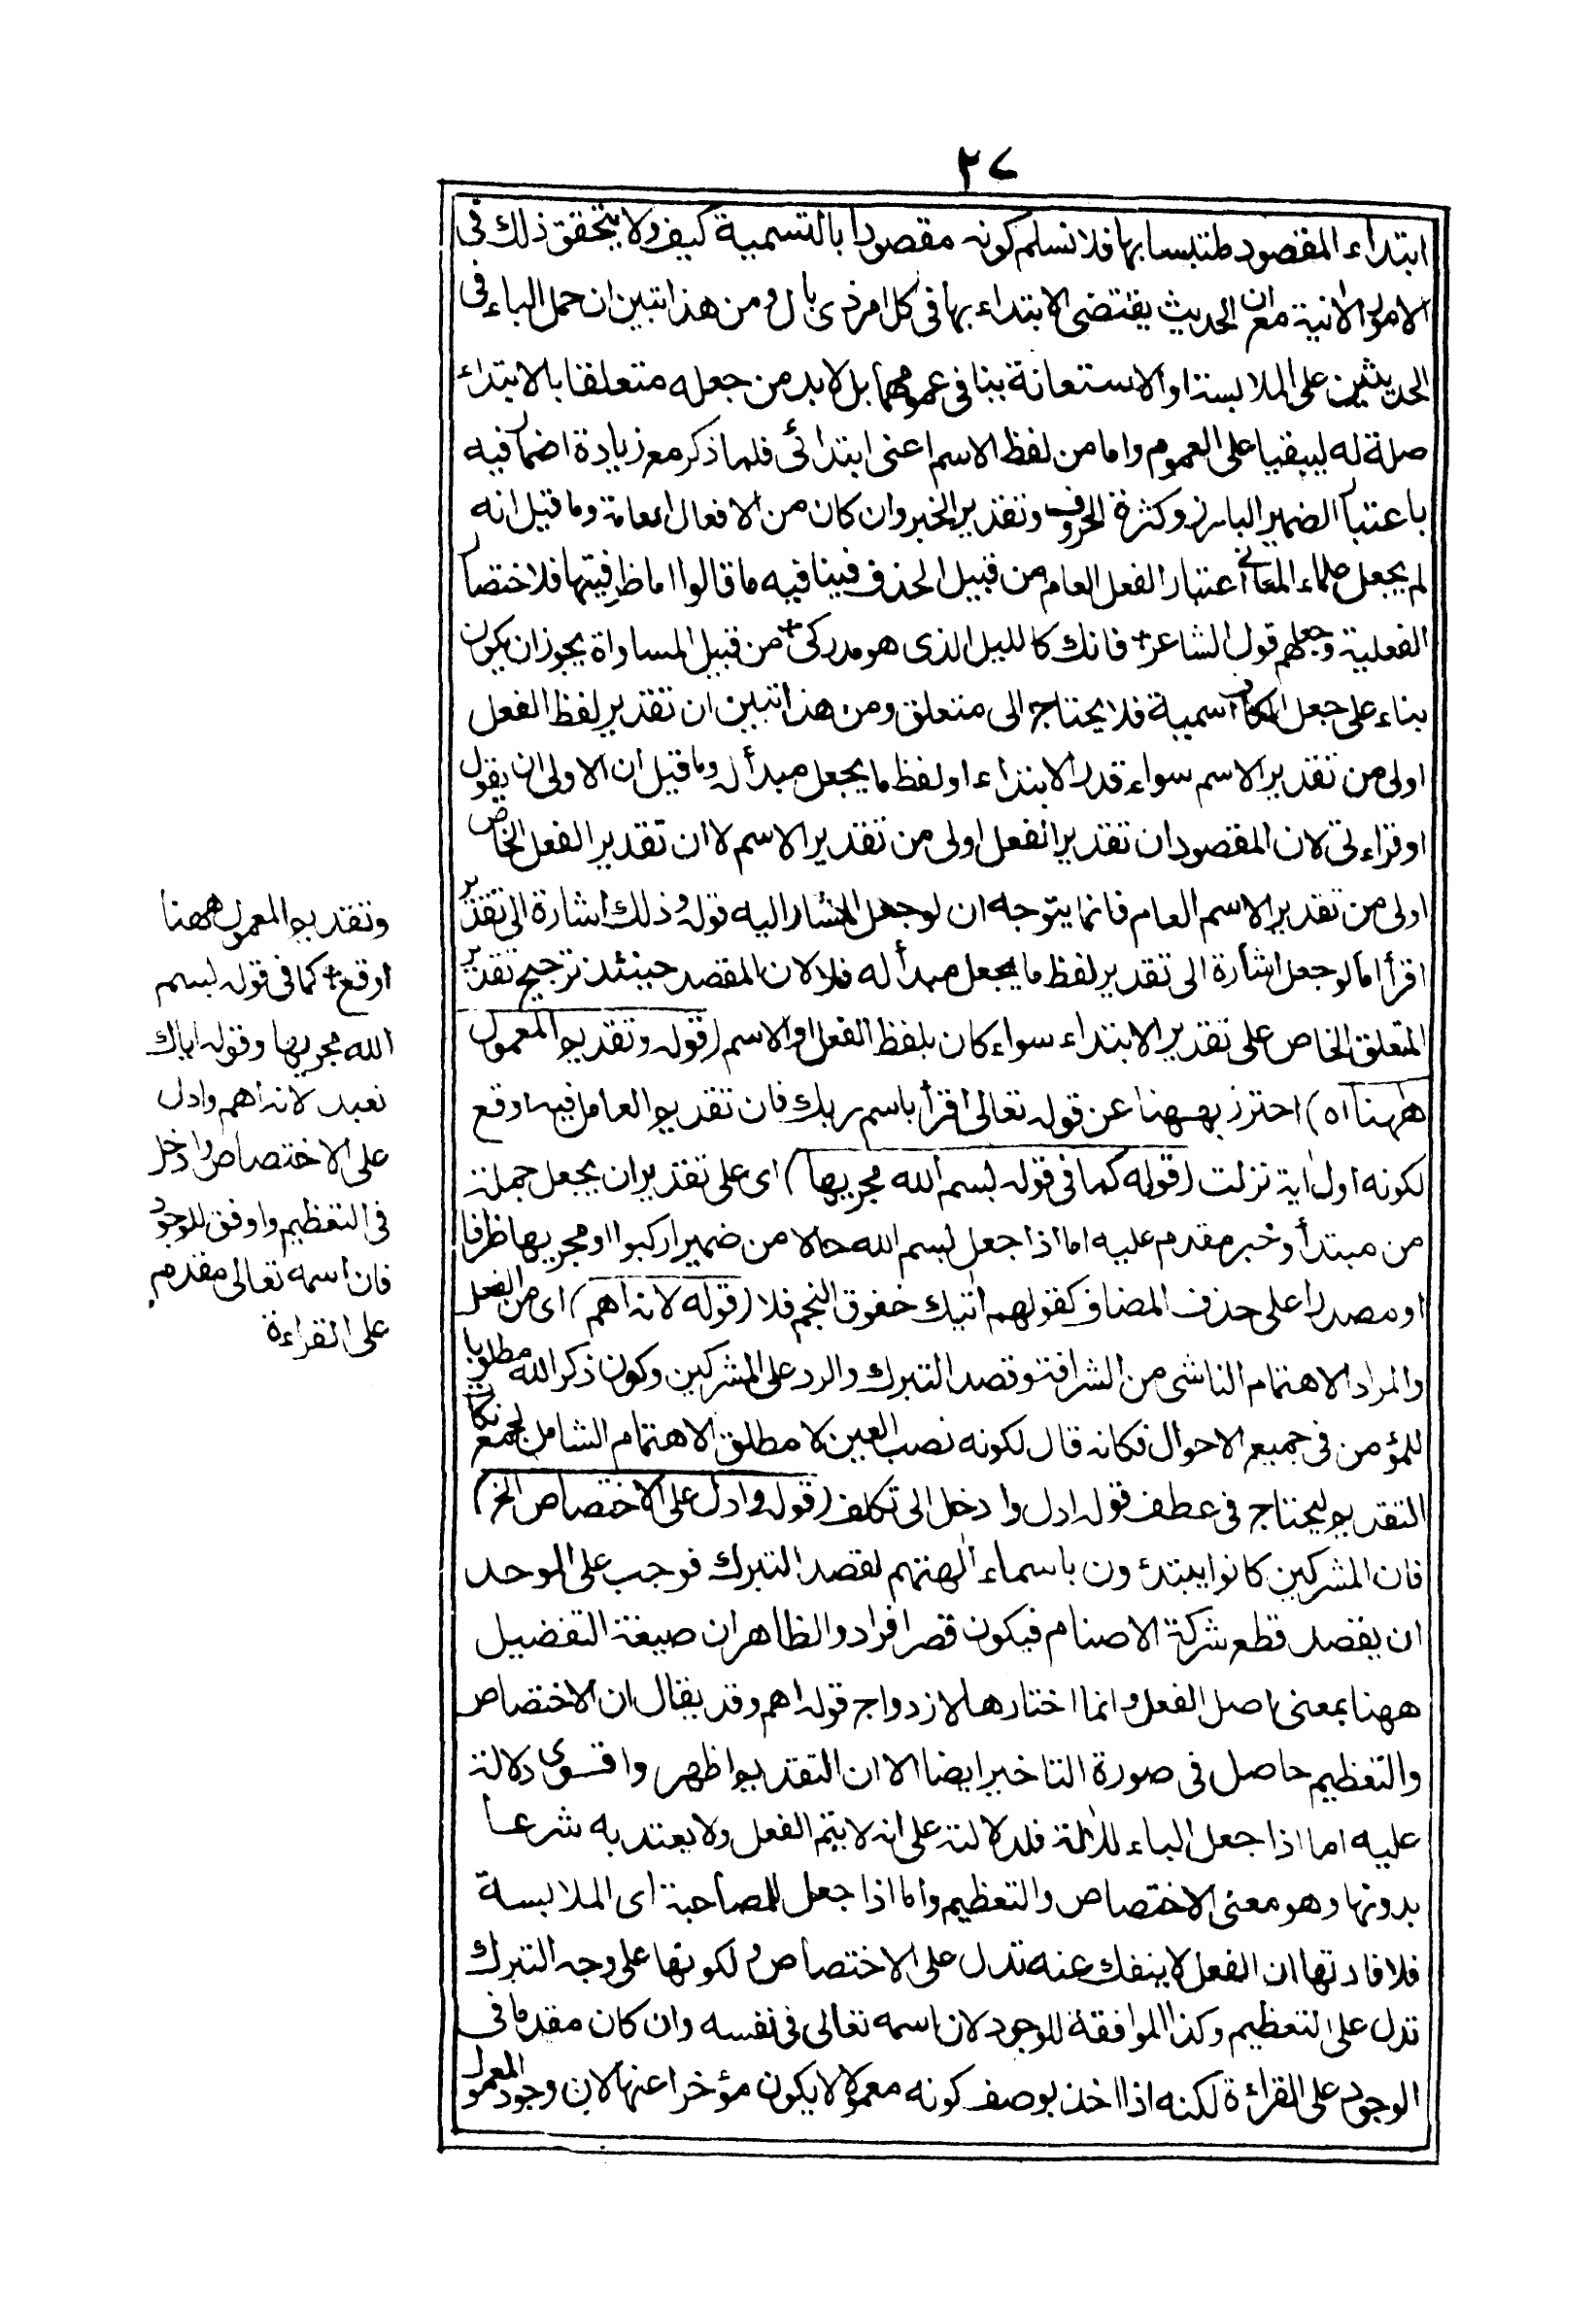 ٢٧
ابتداء المقصود متلبسا بها فلا نسلم كونه مقصودا بالتسمية كيف ولا يتحقق ذلك فى
الامور الآنية مع ان الحديث يقتضى الابتداء بها فى كل امر ذى بال ومن هذا تبين ان حمل الباء فى
الحديثين على الملابسة او الاستعانة ينافى عمومهما بل لابد من جعله متعلقا بالابتداء
صلة له ليبقيا على العموم واما من لفظ الاسم اعنى ابتدائى فلما ذكر مع زيادة اضمار فيه
باعتبار الضمير البارز وكثرة الحروف وتقدير الخبر وان كان من الافعال العامة وما قيل انه
لم يجعل علماء المعانى اعتبار الفعل العام من قبيل الحذف فينافيه ما قالوا اما ظرفيتها فلاختصار
الفعلية وجعلهم قول الشاعر + فانك كالليل الذى هو مدركى + من قبيل المساواة يجوز ان يكون
بناء على جعل الكاف اسمية فلا يحتاج الى متعلق ومن هذا تبين ان تقدير لفظ الفعل
اولى من تقدير الاسم سواء قدر الابتداء او لفظ ما يجعل مبدأ له وما قيل ان الاولى ان يقول
او قراءتى لان المقصود ان تقدير الفعل اولى من تقدير الاسم لا ان تقدير الفعل الخاص
اولى من تقدير الاسم العام فانما يتوجه ان لو جعل المشار اليه قوله وذلك اشارة الى تقدير
اقرأ اما لو جعل اشارة الى تقدير لفظ ما يجعل مبدأ له فلا لان المقصد حينئذ ترجيح تقدير
المتعلق الخاص على تقدير الابتداء سواء كان بلفظ الفعل او الاسم (قوله وتقديم المعمول
ههنا اه) احترز بههنا عن قوله تعالى اقرأ باسم ربك فان تقديم العامل فيه اوقع
لكونه اول آية نزلت (قوله كما فى قوله بسم الله مجريها) اى على تقدير ان يجعل جملة
من مبتدأ وخبر مقدم عليه اما اذا جعل بسم الله حالا من ضمير اركبوا او مجريها ظرفا
او مصدرا على حذف المضاف كقولهم آتيك خفوق النجم فلا (قوله لانه اهم) اى من الفعل
والمراد الاهتمام الناشى من الشرافة وقصد التبرك والرد على المشركين وكون ذكر الله مطلوبا
للمؤمن فى جميع الاحوال فكانه قال لكونه نصب العين لا مطلق الاهتمام الشامل لجميع نكات
التقديم ليحتاج فى عطف قوله ادل وادخل الى تكلف (قوله وادل على الاختصاص الخ)
فان المشركين كانوا يبتدؤن باسماء آلهتهم لقصد التبرك فوجب على الموحد
ان يقصد قطع شركة الاصنام فيكون قصر افراد والظاهر ان صيغة التفضيل
ههنا بمعنى اصل الفعل وانما اختارها لازدواج قوله اهم وقد يقال ان الاختصاص
والتعظيم حاصل فى صورة التاخير ايضا الا ان التقديم اظهر واقوى دلالة
عليه اما اذا جعل الباء للآلة فلدلالته على انه لا يتم الفعل ولا يعتد به شرعا
بدونها وهو معنى الاختصاص والتعظيم واما اذا جعل للمصاحبة اى الملابسة
فلافادتها ان الفعل لا ينفك عنه تدل على الاختصاص ولكونها على وجه التبرك
تدل على التعظيم وكذا الموافقة للوجود لان اسمه تعالى فى نفسه وان كان مقدما فى
الوجود على القراءة لكنه اذا اخذ بوصف كونه معمولا لا يكون مؤخرا عنها لان وجود المعمول
وتقديم المعمول ههنا
اوقع + كما فى قوله بسم
الله مجريها وقوله اياك
نعبد لانه اهم وادل
على الاختصاص وادخل
فى التعظيم واوفق للوجود
فان اسمه تعالى مقدم
على القراءة